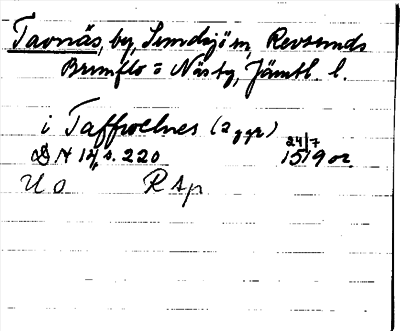 Tavnäs, by, Sundsjö sn, Revsunds
Brunflo o Näs tg, Jämtl. l.
i Taffwelnes (2 ggr)
DN 14, s. 220 24/7 1519 or.
U o R Ap